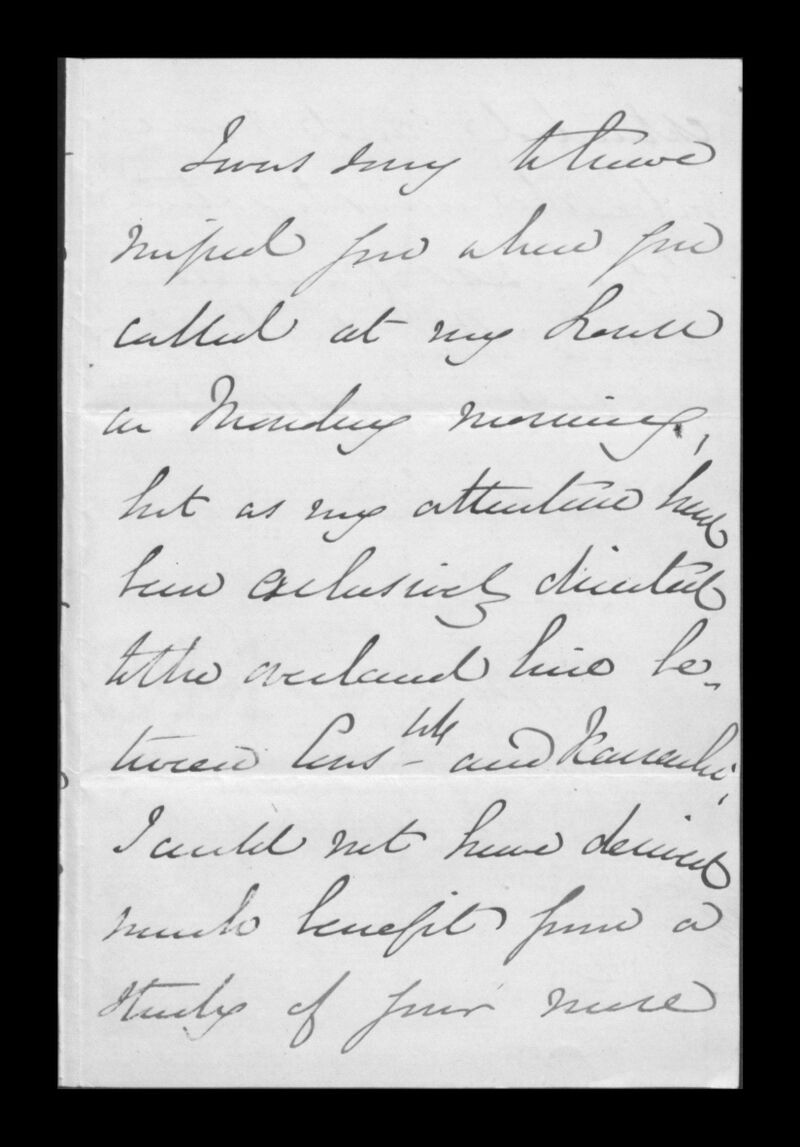 I was sorry to have
missed you when you
called at my house
on Monday morning,
but as my attention had
been exclusively directed
to the overland line be-
tween Cons-tple and Karrachi,
I could not have derived
much benefit from a
study of your more